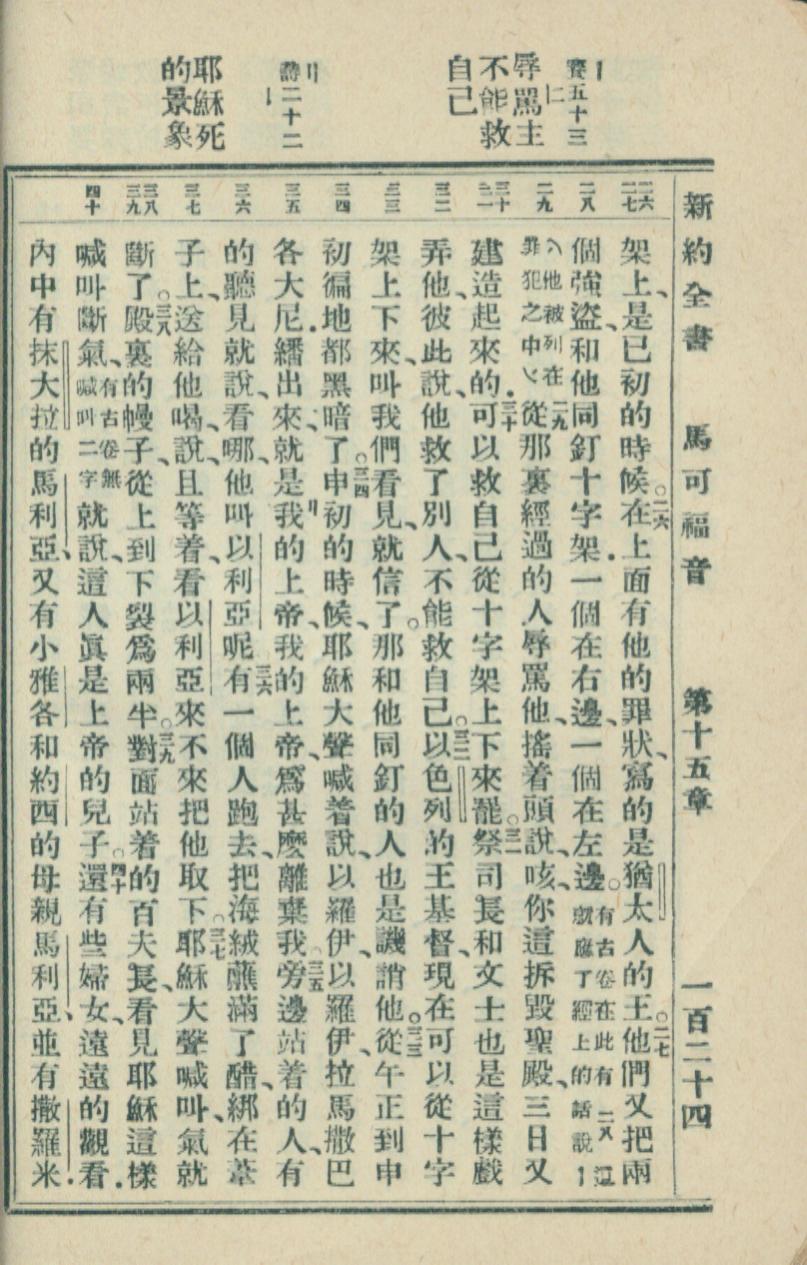 新約全書 馬可福音 第十五章 一百二十四
賽五十三
辱罵主
不能救
自己
詩二十二
耶穌死
的景象
二六
二七
二八
二九
三十
三一
三二
三三
三四
三五
三六
三七
三八
三九
四十
架上、是已初的時候。二六在上面有他的罪狀、寫的是猶太人的王。二七他們又把兩
個強盜、和他同釘十字架．一個在右邊、一個在左邊。有古卷在此有二八這就應了經上的話說
他被列在罪犯之中二九從那裏經過的人辱罵他、搖着頭說、咳、你這拆毀聖殿、三日又
建造起來的．三十可以救自己從十字架上下來罷。三一祭司長和文士也是這樣戲
弄他、彼此說、他救了別人、不能救自己。三二以色列的王基督、現在可以從十字
架上下來、叫我們看見、就信了。那和他同釘的人也是譏誚他。三三從午正到申
初徧地都黑暗了。三四申初的時候、耶穌大聲喊着說、以羅伊、以羅伊、拉馬撒巴
各大尼．繙出來、就是我的上帝、我的上帝、爲甚麼離棄我。三五旁邊站着的人、有
的聽見就說、看哪、他叫以利亞呢。三六有一個人跑去、把海絨蘸滿了醋、綁在葦
子上、送給他喝、說、且等着、看以利亞來不來把他取下。三七耶穌大聲喊叫、氣就
斷了。三八殿裏的幔子、從上到下裂爲兩半。三九對面站着的百夫長、看見耶穌這樣
喊叫斷氣、有古卷無喊叫二字就說、這人眞是上帝的兒子。四十還有些婦女、遠遠的觀看．
內中有抹大拉的馬利亞、又有小雅各和約西的母親馬利亞、並有撒羅米．